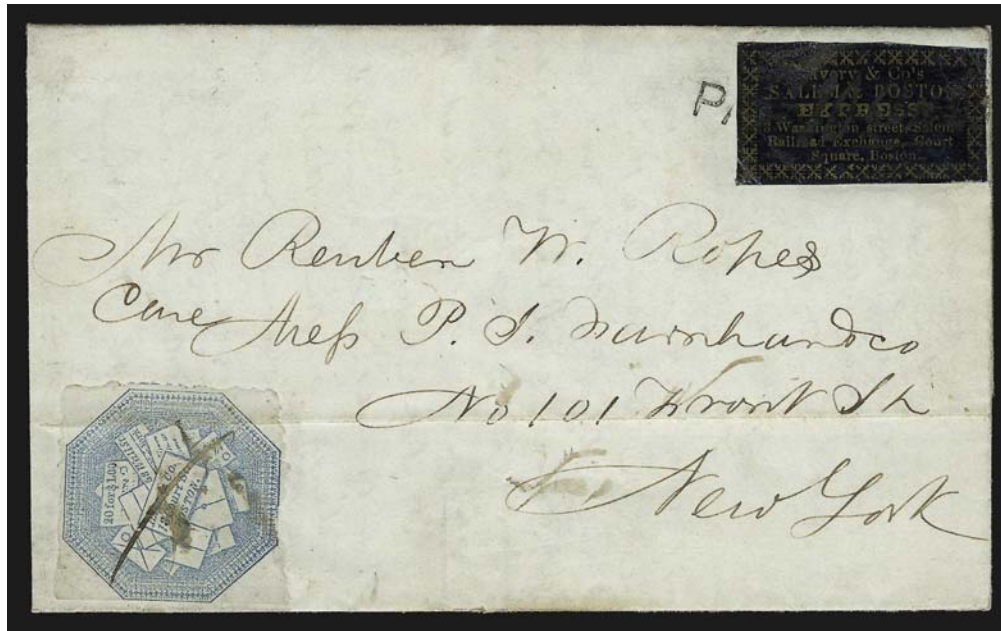 PA
Avery & Co's
SALEM & BOSTON
EXPRESS
Washington street, Salem
Railroad Exchange, Court
Square, Boston.
Mr Reuben W. Ropes
Care Mess P. I. Farnham & co
No 101 Front St
New York
20 for $1.00
Court St.
BOSTON.